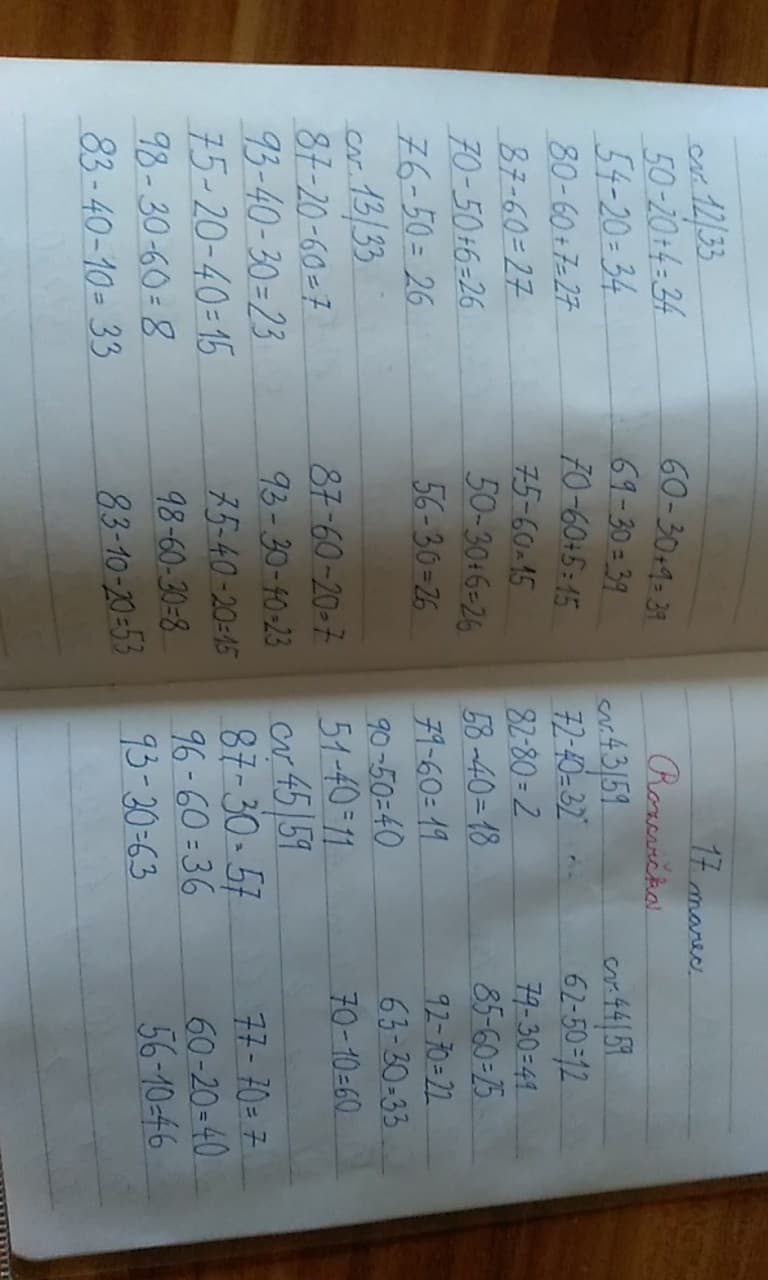 cv. 12/33
50-20+4=34 60-30+9=39
54-20=34 69-30=39
80-60+7=27 70-60+5=15
87-60=27 75-60=15
70-50+6=26 50-30+6=26
76-50=26 56-30=26
cv. 13/33
87-20-60=7 87-60-20=7
93-40-30=23 93-30-40=23
75-20-40=15 75-40-20=15
98-30-60=8 98-60-30=8
83-40-10=33 83-10-20=53
17. marec
Rozcvička
cv. 43/59 cv. 44/59
72-40=32 62-50=12
82-80=2 79-30=49
58-40=18 85-60=25
79-60=19 92-70=22
90-50=40 63-30=33
51-40=11 70-10=60
cv 45/59
87-30=57 77-70=7
96-60=36 60-20=40
93-30=63 56-10=46